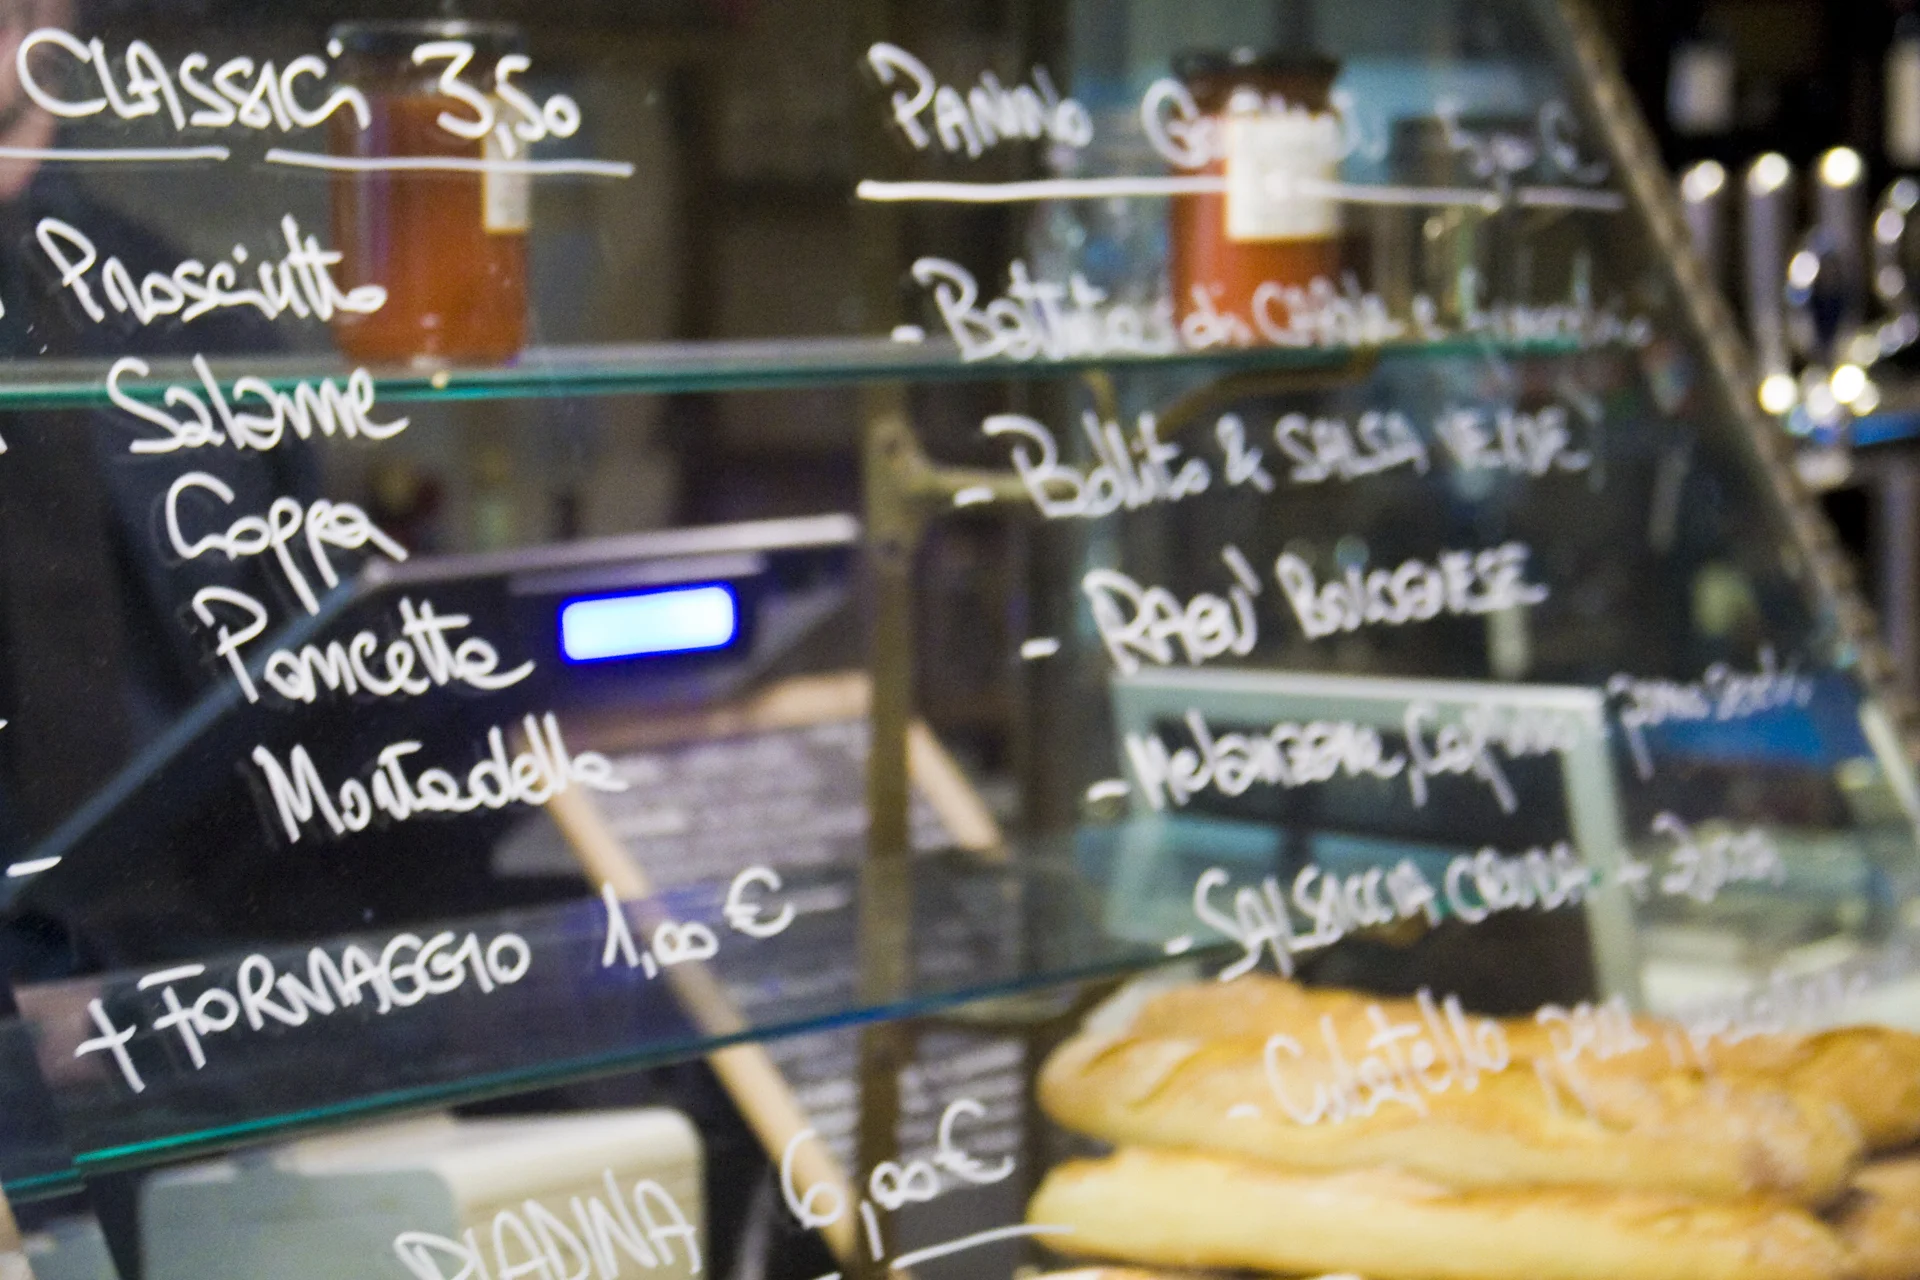 CLASSICI 3,50
Prosciutto
Salame
Coppa
Pancetta
Mortadella
+ FORMAGGIO 1,00 €
PIADINA 6,00 €
PANINO
- Battuta di
- Bollito & SALSA VERDE
- RAGU' BOLOGNESE
- Melanzane,
- SALSICCIA CRUDA +
- Culatello